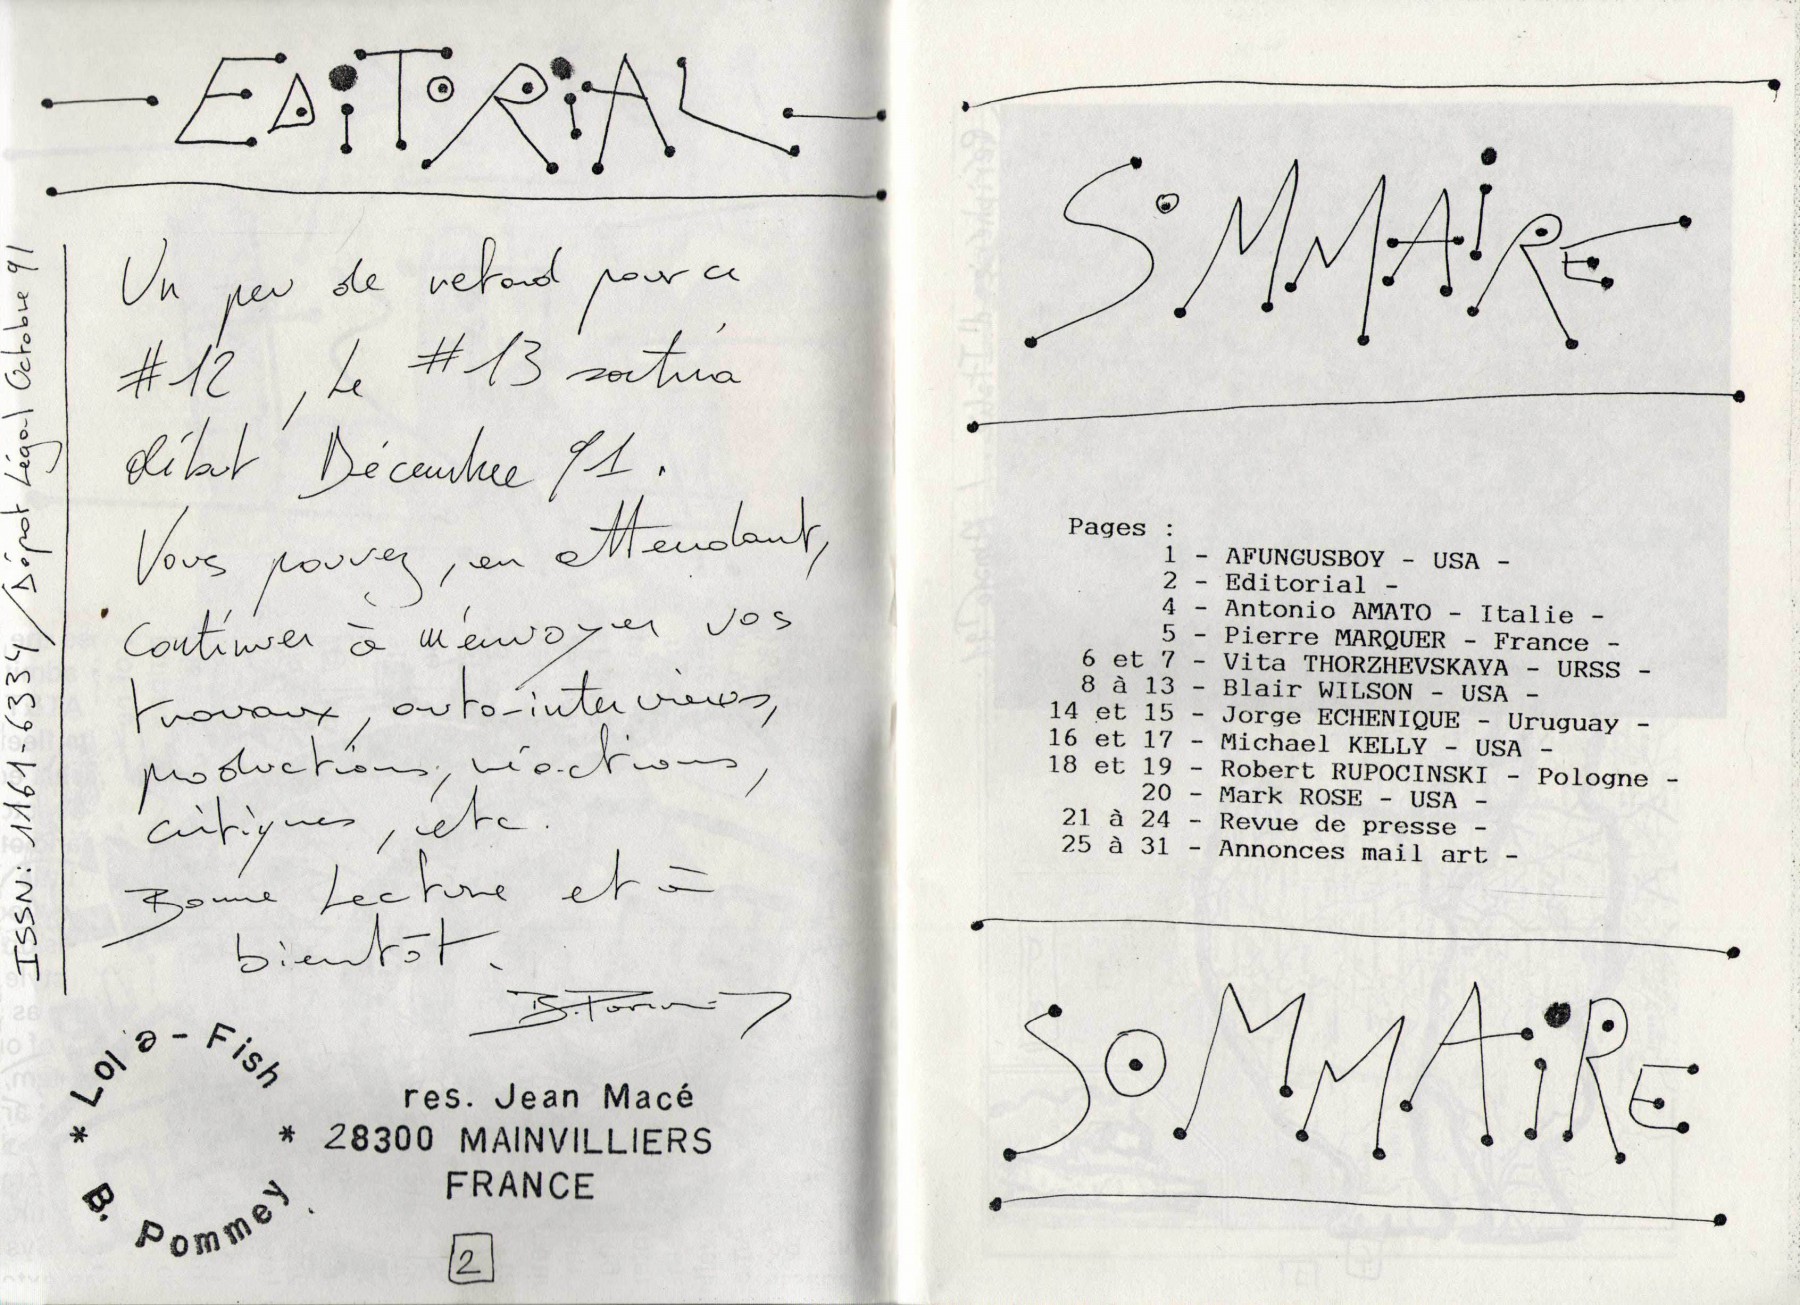 EDiTORiAL
Un peu de retard pour ce
#12, Le #13 sortira
début Décembre 91.
Vous pouvez, en attendant,
continuer à m'envoyer vos
travaux, auto-interviews,
productions, réactions,
critiques, etc.
Bonne Lecture et à
bientôt.
B. Pommey
ISSN: 1161-6334 / Dépot Légal Octobre 91
* Lola-Fish *
B. Pommey
res. Jean Macé
28300 MAINVILLIERS
FRANCE
2
SOMMAiRE
Pages :
1 - AFUNGUSBOY - USA -
2 - Editorial -
4 - Antonio AMATO - Italie -
5 - Pierre MARQUER - France -
6 et 7 - Vita THORZHEVSKAYA - URSS -
8 à 13 - Blair WILSON - USA -
14 et 15 - Jorge ECHENIQUE - Uruguay -
16 et 17 - Michael KELLY - USA -
18 et 19 - Robert RUPOCINSKI - Pologne -
20 - Mark ROSE - USA -
21 à 24 - Revue de presse -
25 à 31 - Annonces mail art -
SOMMAiRE